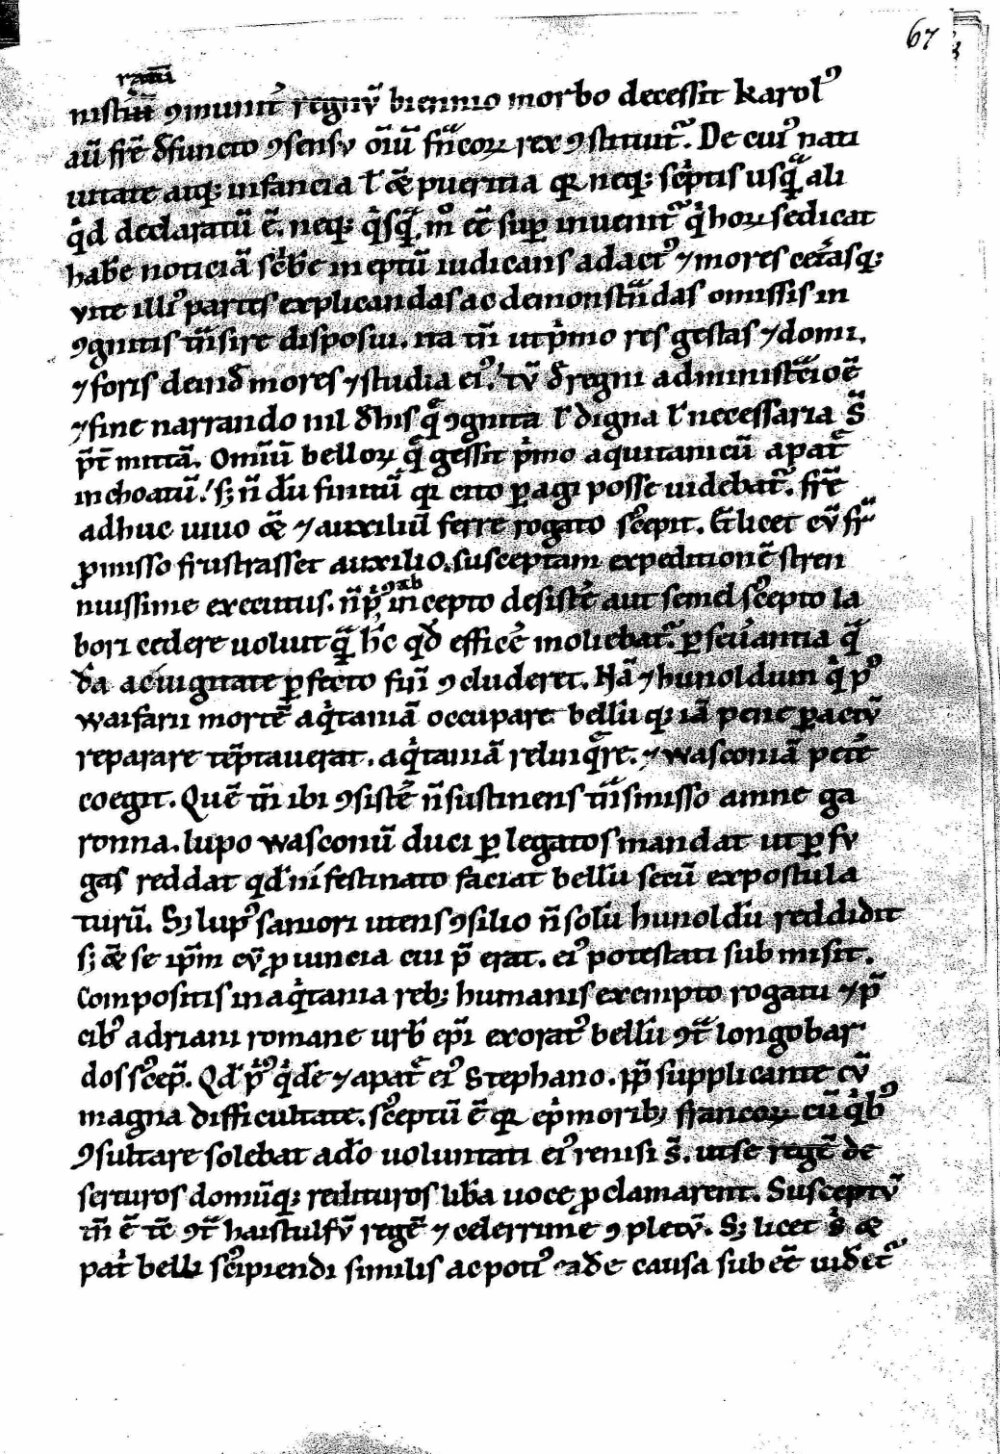 67
ranū
nistiū ꝯmunit̾ regnū biennio morbo decessit karolꝰ
aū frē dfuncto ꝯsensu oīū fͣncoꝝ rex ꝯstituit᷑. De cuiꝰ nati
uitate atqꝫ infancia ł c̄ pueritia qꝛ neqꝫ sc͛ptis usqͣ ali
qͥd declaratū ē. neqꝫ qͥsqͣ m̊ cē̄ suꝑ inuenit᷑ qͥ hoꝝ se dicat
hab̄e noticiā sc͛b̄e ineptū iudicans ad actꝰ ⁊ mores cet͛asqꝫ
vite illiꝰ partes explicandas ac demonstͣndas omissis in
ꝯgnitis tͣnsire disposui. ita tn̄ ut pͥmo res gestas ⁊ domi.
⁊ foris deind mores ⁊ studia eiꝰ. tū d regni administͣcioē
⁊ fine narrando nil dhis qͤ ꝯgnita ł digna ł necessaria s̄
p̄t mittā. Omīū belloꝝ qͤ gessit pͥmo aquitanicū a patͤ
inchoatū. sꝫ n̄ dū finitū qꝛ cito ꝑagi posse uidebat᷑. frē
adhuc uiuo c̄ ⁊ auxiliū ferre rogato scͦepit. Et licet cū fr̄
ꝓmisso frustrasset auxilio. susceptam expeditionē stren
niuissime executus. n̄ pͥꝰ incepto desistē aut semel scͦepto la
bori cedere uoluit qͣ hͨ qd̄ efficē moliebat᷑. ꝑseu͛antia qͣ
da ac iugitate ꝑfecto fini ꝯcluderet. Nā ⁊ hunoldum qͥ pꝰ
waifarii mortē aqͥtaniā occupare. bellū qꝫ iā pene ꝑactū
reparare tēptauerat. aqͥtaniā relinqͤre. ⁊ wasconiā petē
coegit. Quē tn̄ ibi ꝯsistē n̄ sustinens tͣnsmisso amne ga
ronna. lupo wasconū duci ꝑ legatos mandat ut ꝑ fu
gas reddat qd̄ ni festinato faciat bellū secū expostula
turū. Sꝫ lupꝰ saniori utens ꝯsilio n̄ solū hunoldū reddidit
sꝫ c̄ se ip̄m cū ꝓuincia cui p̄ erat. eiꝰ potestati submisit.
Compositis in aqͥtania rebꝫ humanis exempto rogatu ⁊ p̄
cibꝰ adriani romane urb̄ ep̄i exoratꝰ bellū ꝯt̄ longobar
dos scͦep̄. Qd̄ pͥꝰ qͥde ⁊ a patͤ eiꝰ Stephano. pp̄ supplicante cū
magna difficultate. scͦeptū ē qꝛ ep̄i moribꝫ francoꝝ cū qͥbꝰ
ꝯsultare solebat ado uoluntati eiꝰ renisi s̄. ut se regē de
serturos domūqꝫ redituros liba uoce ꝓclamarent. Susceptū
tn̄ ē tē ꝯt̄ haistulfū regē ⁊ celerrime ꝯpletū. Sꝫ licet sͥ ⁊
pat̾ belli scͦipiendi similis ac potiꝰ ade causa subeē̄ uidet᷑